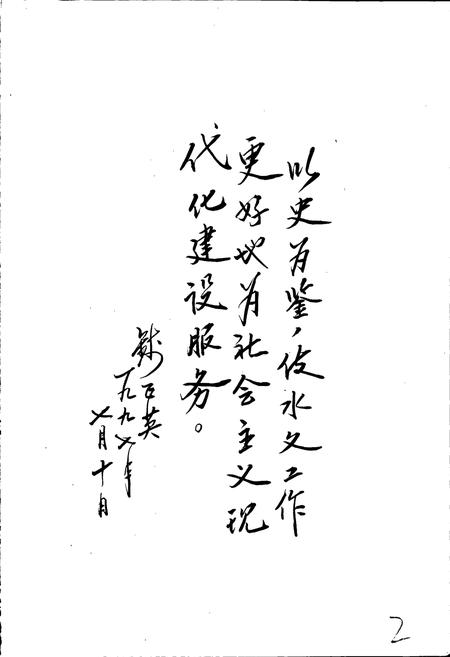 以史为鉴，使水文工作
更好地为社会主义现
代化建设服务。
钱正英
一九九七年
七月十日
2